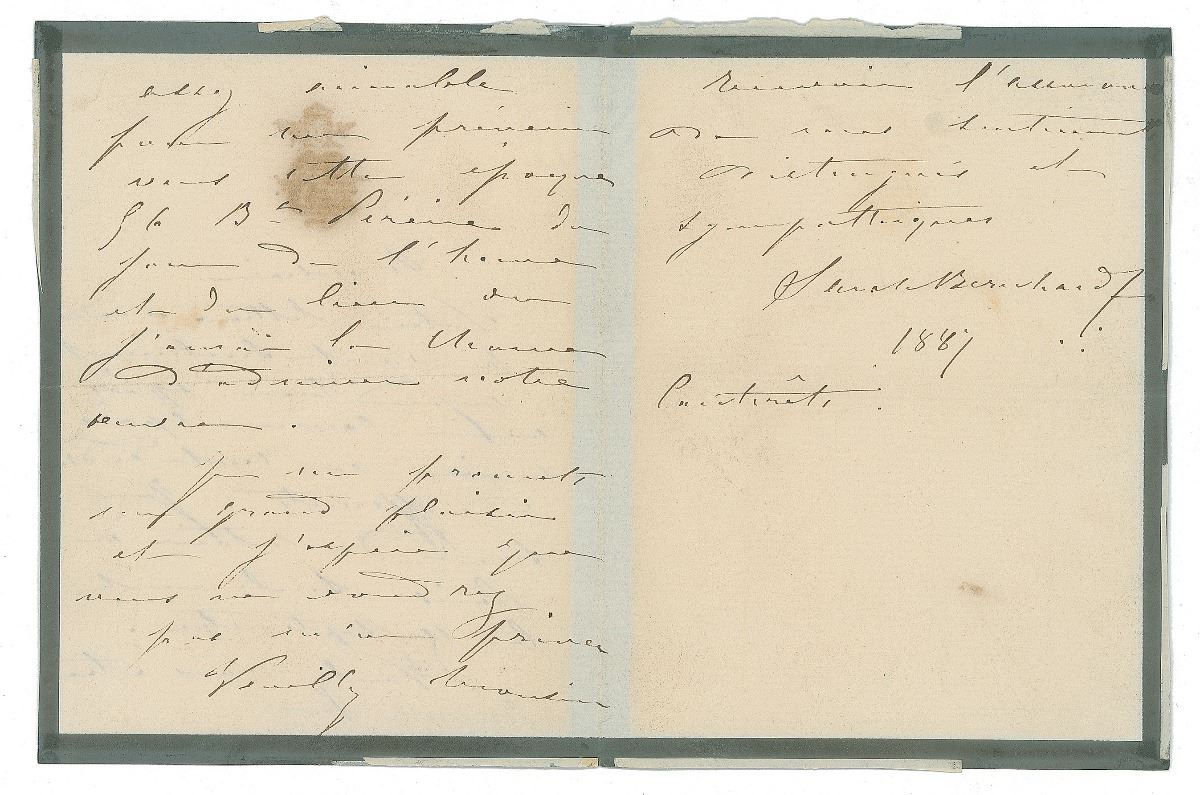 assez aimable
pour me prévenir
vers cette époque
56 Bd Péreire du
jour de l'heure
et du lieu où
j'aurai la chance
d'admirer votre
.
Je me promets
un grand plaisir
et j'espère que
vous ne voudrez
pas m'en priver
Veuillez Monsieur
recevoir l'assurance
de mes sentiments
distingués et
sympathiques
Sarah Bernhardt
1887
Cauterêts.